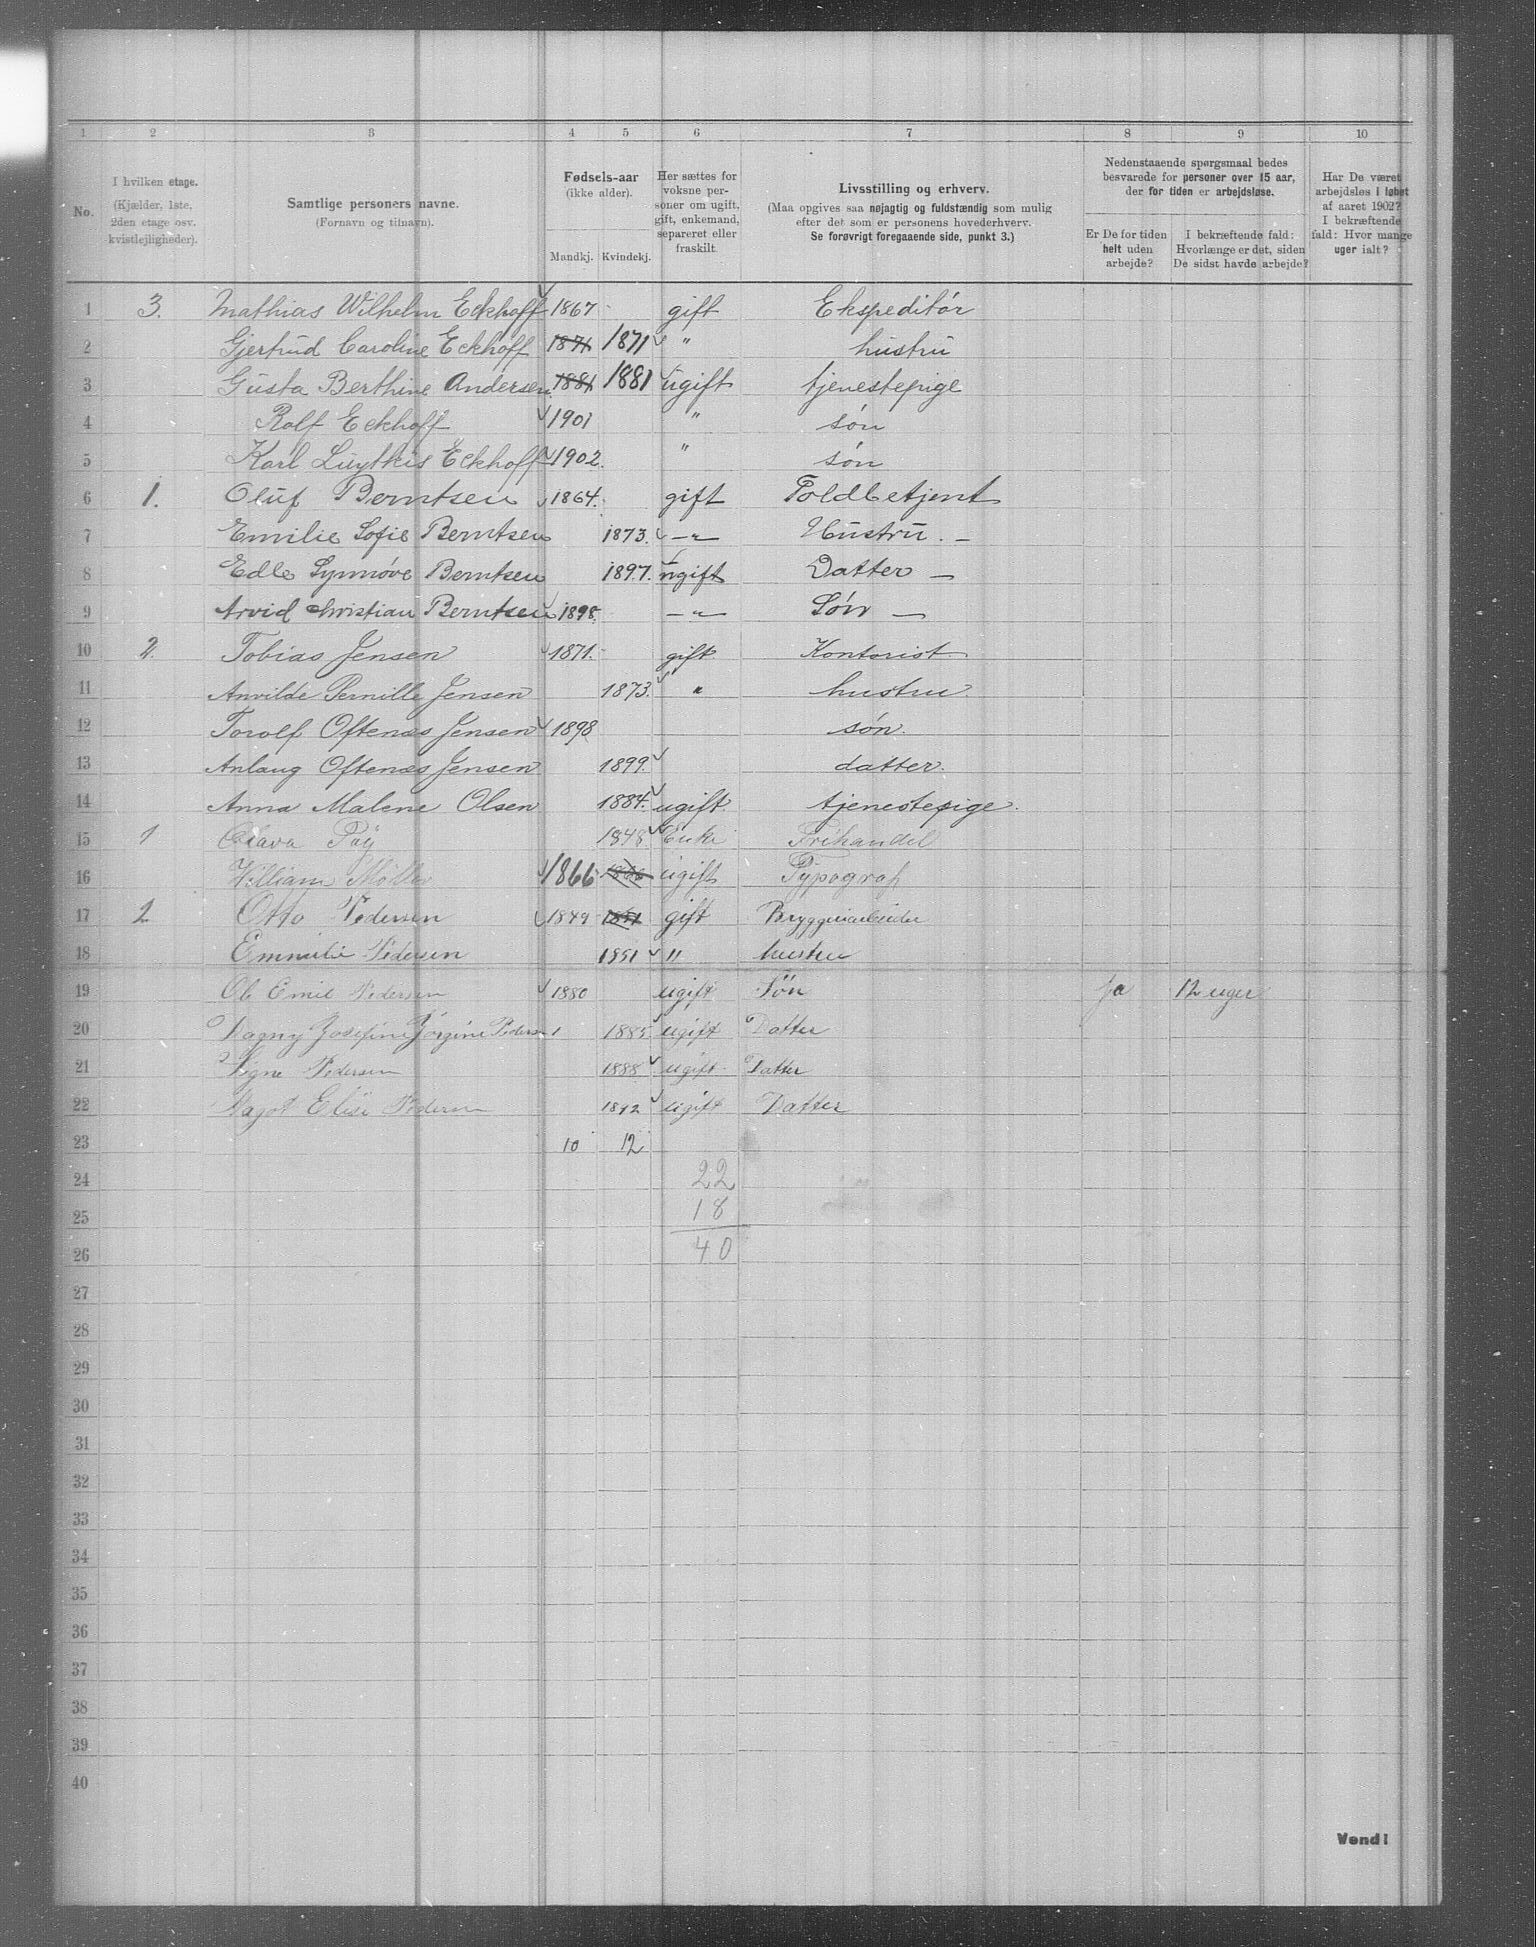 1 2 3 4 5 6 7 8 9 10
No.
I hvilken etage.
(Kjælder, 1ste, 2den etage osv. kvistlejligheder).
Samtlige personers navne.
(Fornavn og tilnavn).
Fødsels-aar
(ikke alder).
Mandkj. Kvindekj.
Her sættes for voksne personer om ugift, gift, enkemand, separeret eller fraskilt.
Livsstilling og erhverv.
(Maa opgives saa nøjagtig og fuldstændig som mulig
efter det som er personens hovederhverv.
Se forøvrigt foregaaende side, punkt 3.)
Nedenstaaende spørgsmaal bedes
besvarede for personer over 15 aar,
der for tiden er arbejdsløse.
Er De for tiden helt uden arbejde?
I bekræftende fald: Hvorlænge er det, siden De sidst havde arbejde?
Har De været arbejdsløs i løbet af aaret 1902? I bekræftende fald: Hvor mange uger ialt?
1 3. Mathias Wilhelm Eckhoff 1867 gift Ekspeditør
2 Gjertrud Caroline Eckhoff 1871 1871 " hustru
3 Gusta Berthine Andersen 1881 1881 ugift tjenestepige
4 Rolf Eckhoff 1901 " søn
5 Karl Luytkis Eckhoff 1902. " søn
6 1. Oluf Berntsen 1864. gift Toldbetjent
7 Emilie Sofie Berntsen 1873. —"— Hustru. —
8 Edle Synnøve Berntsen 1897. ugift Datter —
9 Arvid Christian Berntsen 1898. —"— Søn —
10 2. Tobias Jensen 1871. gift. Kontorist.
11 Anvilde Pernille Jensen 1873. " hustru.
12 Torolf Oftenæs Jensen 1898 søn.
13 Anlaug Oftenæs Jensen 1899. datter.
14 Anna Malene Olsen 1884. ugift. tjenestepige.
15 1 Olava 1848 Enke Frihandel
16 William Møller 1866 1866 ugift Typograf
17 2 Otto Pedersen 1849 gift Bryggeriarbeider
18 Emmilie Pedersen 1851 " hustru
19 Ole Emil Pedersen 1880 ugift Søn ja 12 uger
20 Dagny Josefine Jörgine Pedersen 1885 ugift Datter
21 Signe Pedersen 1888 ugift Datter
22 Magot Elise Pedersen 1892 ugift Datter
23 10 12
24 22
25 18
26 40
27
28
29
30
31
32
33
34
35
36
37
38
39
40
Vend!